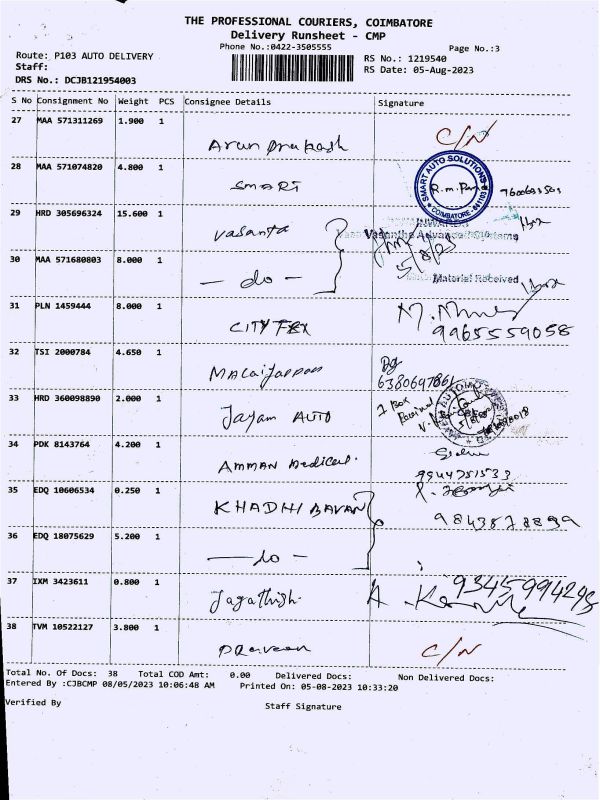 THE PROFESSIONAL COURIERS, COIMBATORE
Delivery Runsheet - CMP
Phone No.:0422-3505555
Page No.:3
Route: P103 AUTO DELIVERY
RS No.: 1219540
Staff:
RS Date: 05-Aug-2023
DRS No.: DCJB121954003
S No Consignment No Weight PCS Consignee Details Signature
27 MAA 571311269 1.900 1
Arun prakash C/N
28 MAA 571074820 4.800 1
SMART
SMART AUTO SOLUTIONS
COIMBATORE
29 HRD 305696324 15.600 1
Vasanta
5/8/23
30 MAA 571680803 8.000 1
- do - Material Received
31 PLN 1459444 8.000 1
CITY FBX
9965559058
32 TSI 2000784 4.650 1
6380697861
33 HRD 360098890 2.000 1
Jayam AUTO
34 PDK 8143764 4.200 1
AMMAN Medical.
9944751533
35 EDQ 10606534 0.250 1
KHADHI BAVAN
36 EDQ 18075629 5.200 1
- do -
37 IXM 3423611 0.800 1
Jagathish. 9345994295
38 TVM 10522127 3.800 1
Praveen C/N
Total No. Of Docs: 38 Total COD Amt: 0.00 Delivered Docs: Non Delivered Docs:
Entered By :CJBCMP 08/05/2023 10:06:48 AM Printed On: 05-08-2023 10:33:20
Verified By
Staff Signature